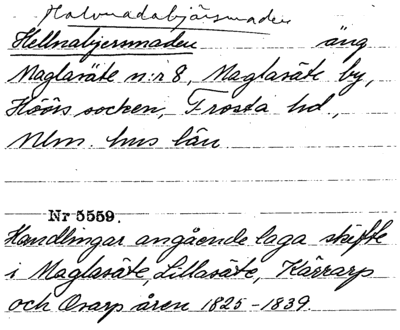 Halvmadabjärsmaden
Hellnabjersmaden äng
Maglasäte n:r 8, Maglasäte by,
Höörs socken, Frosta hd.,
Mlm. hus län.
Nr 5559.
Handlingar angående laga skifte
i Maglasäte, Lillasäte, Kärrarp
och Orarp åren 1825-1839.